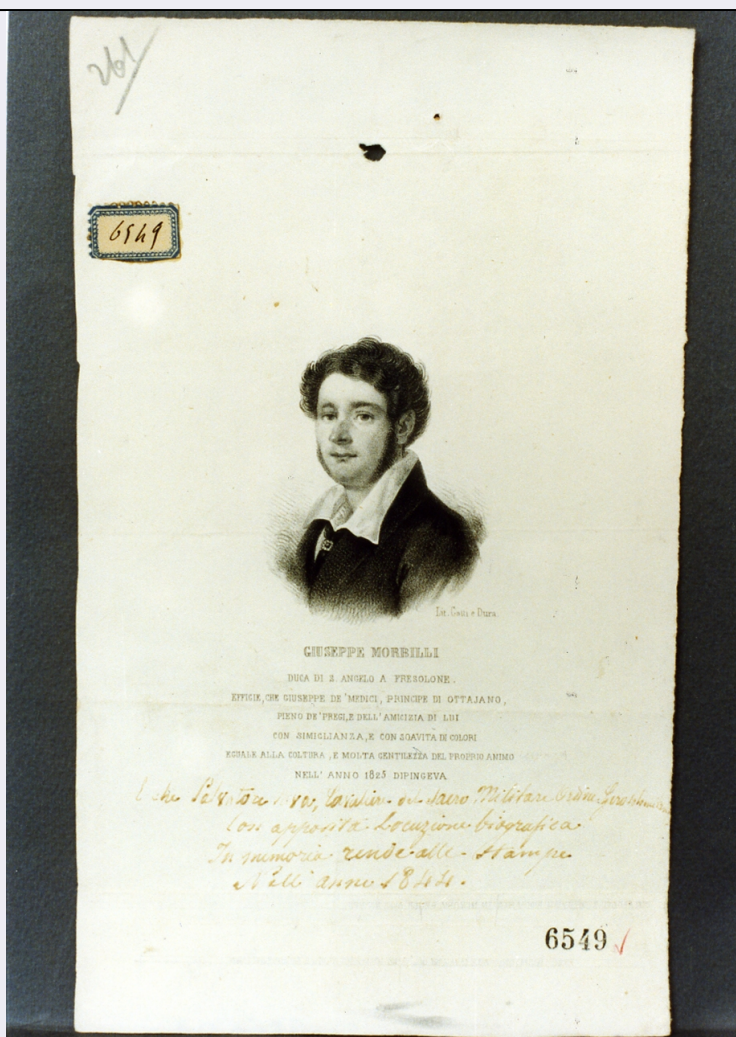 261
6549
Lit. Gatti e Dura.
GIUSEPPE MORBILLI
DUCA DI S. ANGELO A FRESOLONE.
EFFIGIE, CHE GIUSEPPE DE' MEDICI, PRINCIPE DI OTTAJANO,
PIENO DE' PREGI, E DELL' AMICIZIA DI LUI
CON SIMIGLIANZA, E CON SOAVITA DI COLORI
EGUALE ALLA COLTURA, E MOLTA GENTILEZZA DEL PROPRIO ANIMO
NELL' ANNO 1825 DIPINGEVA
E che Salvatore Cavaliere del Sacro Militare Ordine
Con apposita Locuzione biografica
In memoria rende alle Stampe
Nell' anno 1844.
6549